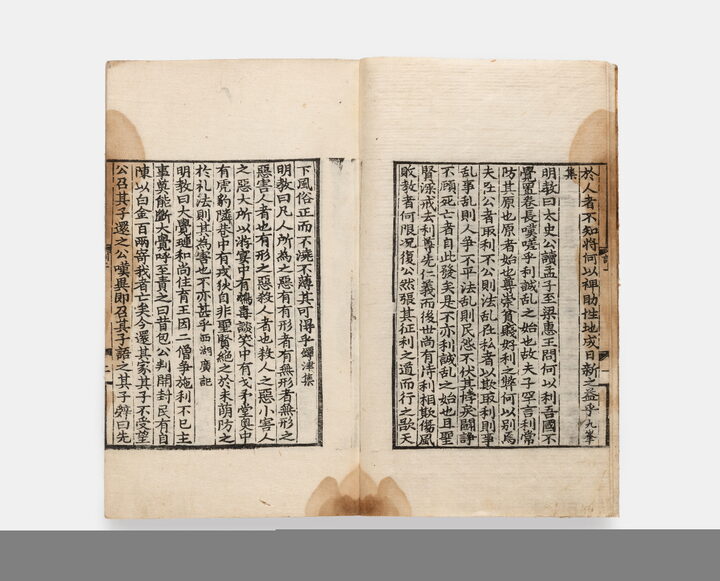 於人者不知將何以裨助性地成日新之益乎九峯
集
明教曰太史公讀孟子至梁惠王問何以利吾國不
覺置卷長嘆嗟乎利誠乱之始也故夫子罕言利常
防其原也原者始也尊崇貧賤好利之弊何以別焉
夫在公者取利不公則法乱在私者以欺取利則事
乱事乱則人爭不平法乱則民怨不伏其悖戾鬪諍
不顧死亡者自此發矣是不亦利誠乱之始也且聖
賢深戒去利尊先仁義而後世尚有恃利相欺傷風
敗教者何限况復公然張其征利之道而行之欲天
下風俗正而不澆不薄其可得乎鐔津集
明教曰凡人所為之惡有有形者有無形者無形之
惡害人者也有形之惡殺人者也殺人之惡小害人
之惡大所以游宴中有鴆毒談笑中有戈矛堂奧中
有虎豹隣巷中有戎狄自非聖賢絶之於未萌防之
於礼法則其為害也不亦甚乎西湖廣記
明教曰大覺璉和尚住育王因二僧爭施利不已主
事莫能斷大覺呼至責之曰昔包公判開封民有自
陳以白金百兩寄我者亡矣今還其家其子不受望
公召其子還之公嘆異即召其子語之其子辞曰先